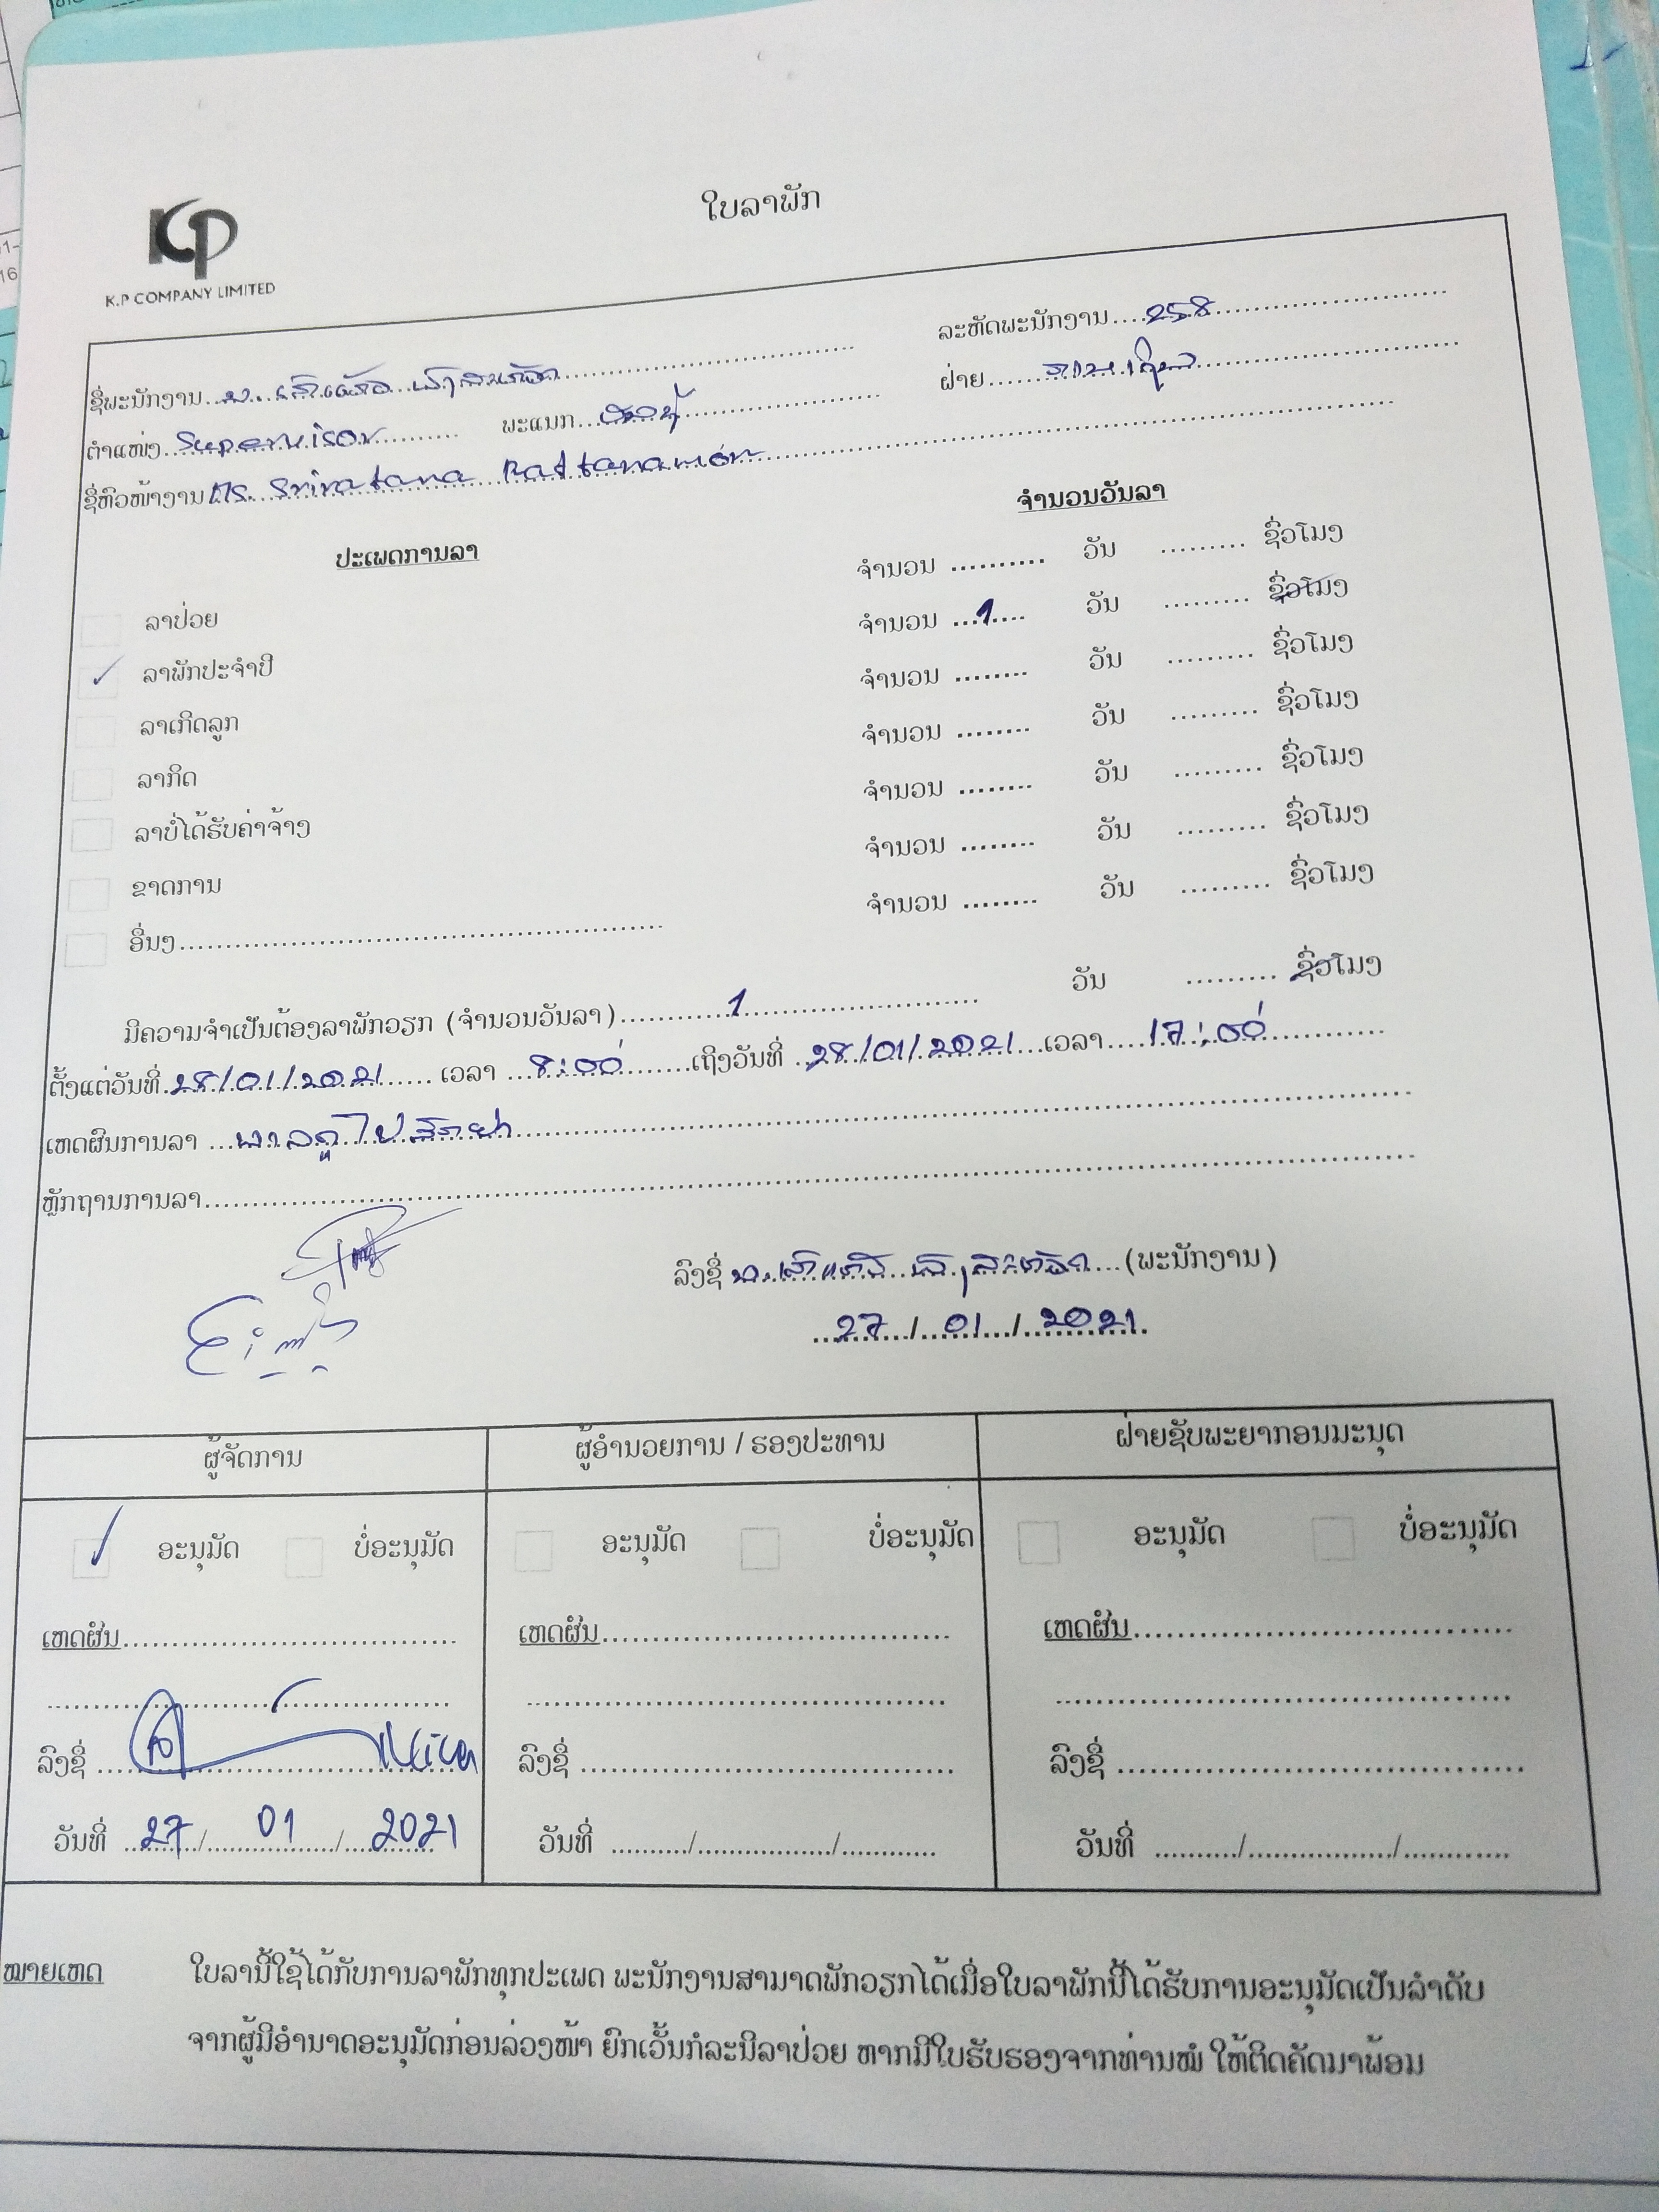 ໃບລາພັກ
KP
K.P COMPANY LIMITED
ລະຫັດພະນັກງານ....258
ຊື່ພະນັກງານ...ນ.
ຝ່າຍ
ຕຳແໜ່ງ..Supervisor ພະແນກ
ຊື່ຫົວໜ້າງານ Ms. Sriratana Rattanamon
ປະເພດການລາ ຈຳນວນວັນລາ
ລາປ່ວຍ ຈຳນວນ .......... ວັນ ......... ຊົ່ວໂມງ
✓ ລາພັກປະຈຳປີ ຈຳນວນ ...1.... ວັນ ......... ຊົ່ວໂມງ
ລາເກີດລູກ ຈຳນວນ ........ ວັນ ......... ຊົ່ວໂມງ
ລາກິດ ຈຳນວນ ........ ວັນ ......... ຊົ່ວໂມງ
ລາບໍ່ໄດ້ຮັບຄ່າຈ້າງ ຈຳນວນ ........ ວັນ ......... ຊົ່ວໂມງ
ຂາດການ ຈຳນວນ ........ ວັນ ......... ຊົ່ວໂມງ
ອື່ນໆ........ ຈຳນວນ ........ ວັນ ......... ຊົ່ວໂມງ
ມີຄວາມຈຳເປັນຕ້ອງລາພັກວຽກ (ຈຳນວນວັນລາ)......1...... ວັນ ......... ຊົ່ວໂມງ
ຕັ້ງແຕ່ວັນທີ.28/01/2021...... ເວລາ ...8:00......ເຖິງວັນທີ .28/01/2021...ເວລາ....17:00
ເຫດຜົນການລາ ...ພາລູກໄປສັກຢາ
ຫຼັກຖານການລາ
ລົງຊື່ ນ. ....(ພະນັກງານ)
27/01/2021
ຜູ້ຈັດການ ຜູ້ອຳນວຍການ / ຮອງປະທານ ຝ່າຍຊັບພະຍາກອນມະນຸດ
✓ ອະນຸມັດ ບໍ່ອະນຸມັດ ອະນຸມັດ ບໍ່ອະນຸມັດ ອະນຸມັດ ບໍ່ອະນຸມັດ
ເຫດຜົນ........ ເຫດຜົນ........ ເຫດຜົນ........
ລົງຊື່ ........ ລົງຊື່ ........ ລົງຊື່ ........
ວັນທີ່ ..27/01/2021 ວັນທີ່ ........../................./............ ວັນທີ່ ........../................./............
ໝາຍເຫດ ໃບລານີ້ໃຊ້ໄດ້ກັບການລາພັກທຸກປະເພດ ພະນັກງານສາມາດພັກວຽກໄດ້ເມື່ອໃບລາພັກນີ້ໄດ້ຮັບການອະນຸມັດເປັນລຳດັບ
ຈາກຜູ້ມີອຳນາດອະນຸມັດກ່ອນລ່ວງໜ້າ ຍົກເວັ້ນກໍລະນີລາປ່ວຍ ຫາກມີໃບຮັບຮອງຈາກທ່ານໝໍ ໃຫ້ຕິດຄັດມາພ້ອມ